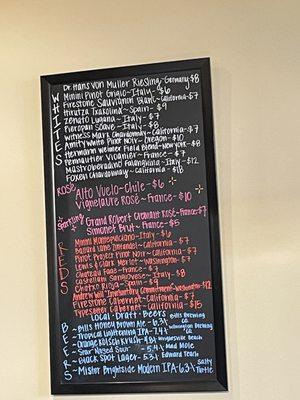 WHITES
Dr. Hans Von Muller Riesling~Germany $8
Minini Pinot Grigio~Italy~ $6
Firestone Sauvignon Blanc~California~$7
Hiruzta Txakolina~Spain~ $9
Zenato Lugana~Italy~ $7
Pieropan Soave~Italy~ $8
Witness Mark Chardonnay~California~$7
Amity White Pinot Noir~Oregon~$10
Hermann Weimer Field Blend~New York~$8
Pennautier Viognier~France~ $7
Mastroberardino Falanghina~Italy~$12
Foxen Chardonnay~California~ $18
ROSÉ
Alto Vuelo~Chile~$6
Vignelaure Rosé~France~$10
Sparkling
Grand Robert Cremant Rosé~France~$7
Simonet Brut~France~ $5
REDS
Minini Montepulciano~Italy~$6
Bazard Lane Zinfandel~California~$7
Pinot Project Pinot Noir~California~$7
Lewis & Clark Merlot~Washington~$7
Chateau Fage~France~$7
Castellani Sangiovese~Italy~ $8
Chotxo Rioja~Spain~ $9
Andrew Will "Involuntary Commitment"~Washington~$12
Firestone Cabernet~California~$7
Typesoner Cabernet~California~ $15
BEERS
Local Draft Beers
Bills Honey Brown Ale 6.3% Bills Brewing Co.
Tropical Lightening IPA~7.4% Wilmington Brewing Co.
Orange Kolsch Krush 4.8% Wrightsville Beach
"Sour Nosed Sour" ~5.4% Mad Mole
Black Spot Lager~ 5.3% Edward Teach
Mister Brightside Modern IPA 6.3% Salty Turtle